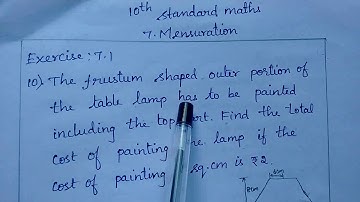 10th Standard maths
7. Mensuration
Exercise: 7.1
10) The frustum shaped outer portion of
the table lamp has to be painted
including the top part. Find the total
cost of painting the lamp if the
cost of painting sq.cm is ₹2.
8cm